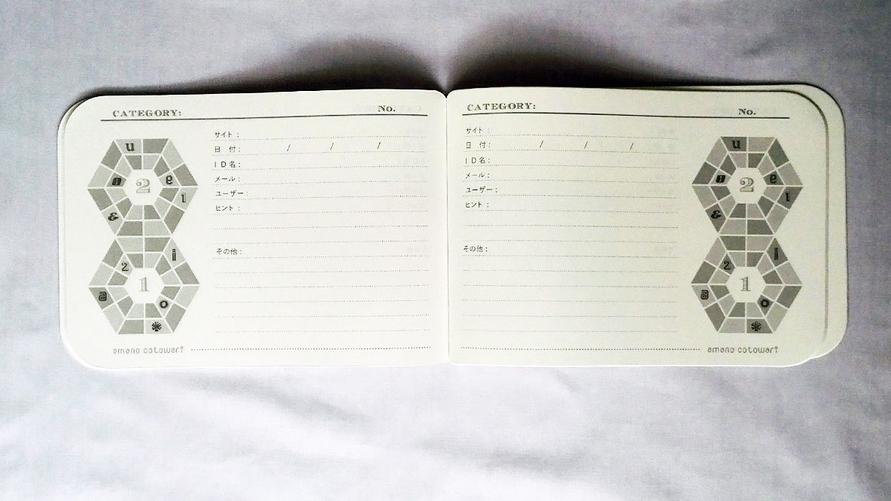 CATEGORY: No.
サイト :
日 付 : / / /
ID名 :
メール :
ユーザー :
ヒント :
その他 :
u
2
e
l
&
i
2
1
@
o
※
amano cotowari
CATEGORY: No.
サイト :
日 付 : / / /
ID名 :
メール :
ユーザー :
ヒント :
その他 :
u
2
e
l
&
i
2
1
@
o
※
amano cotowari